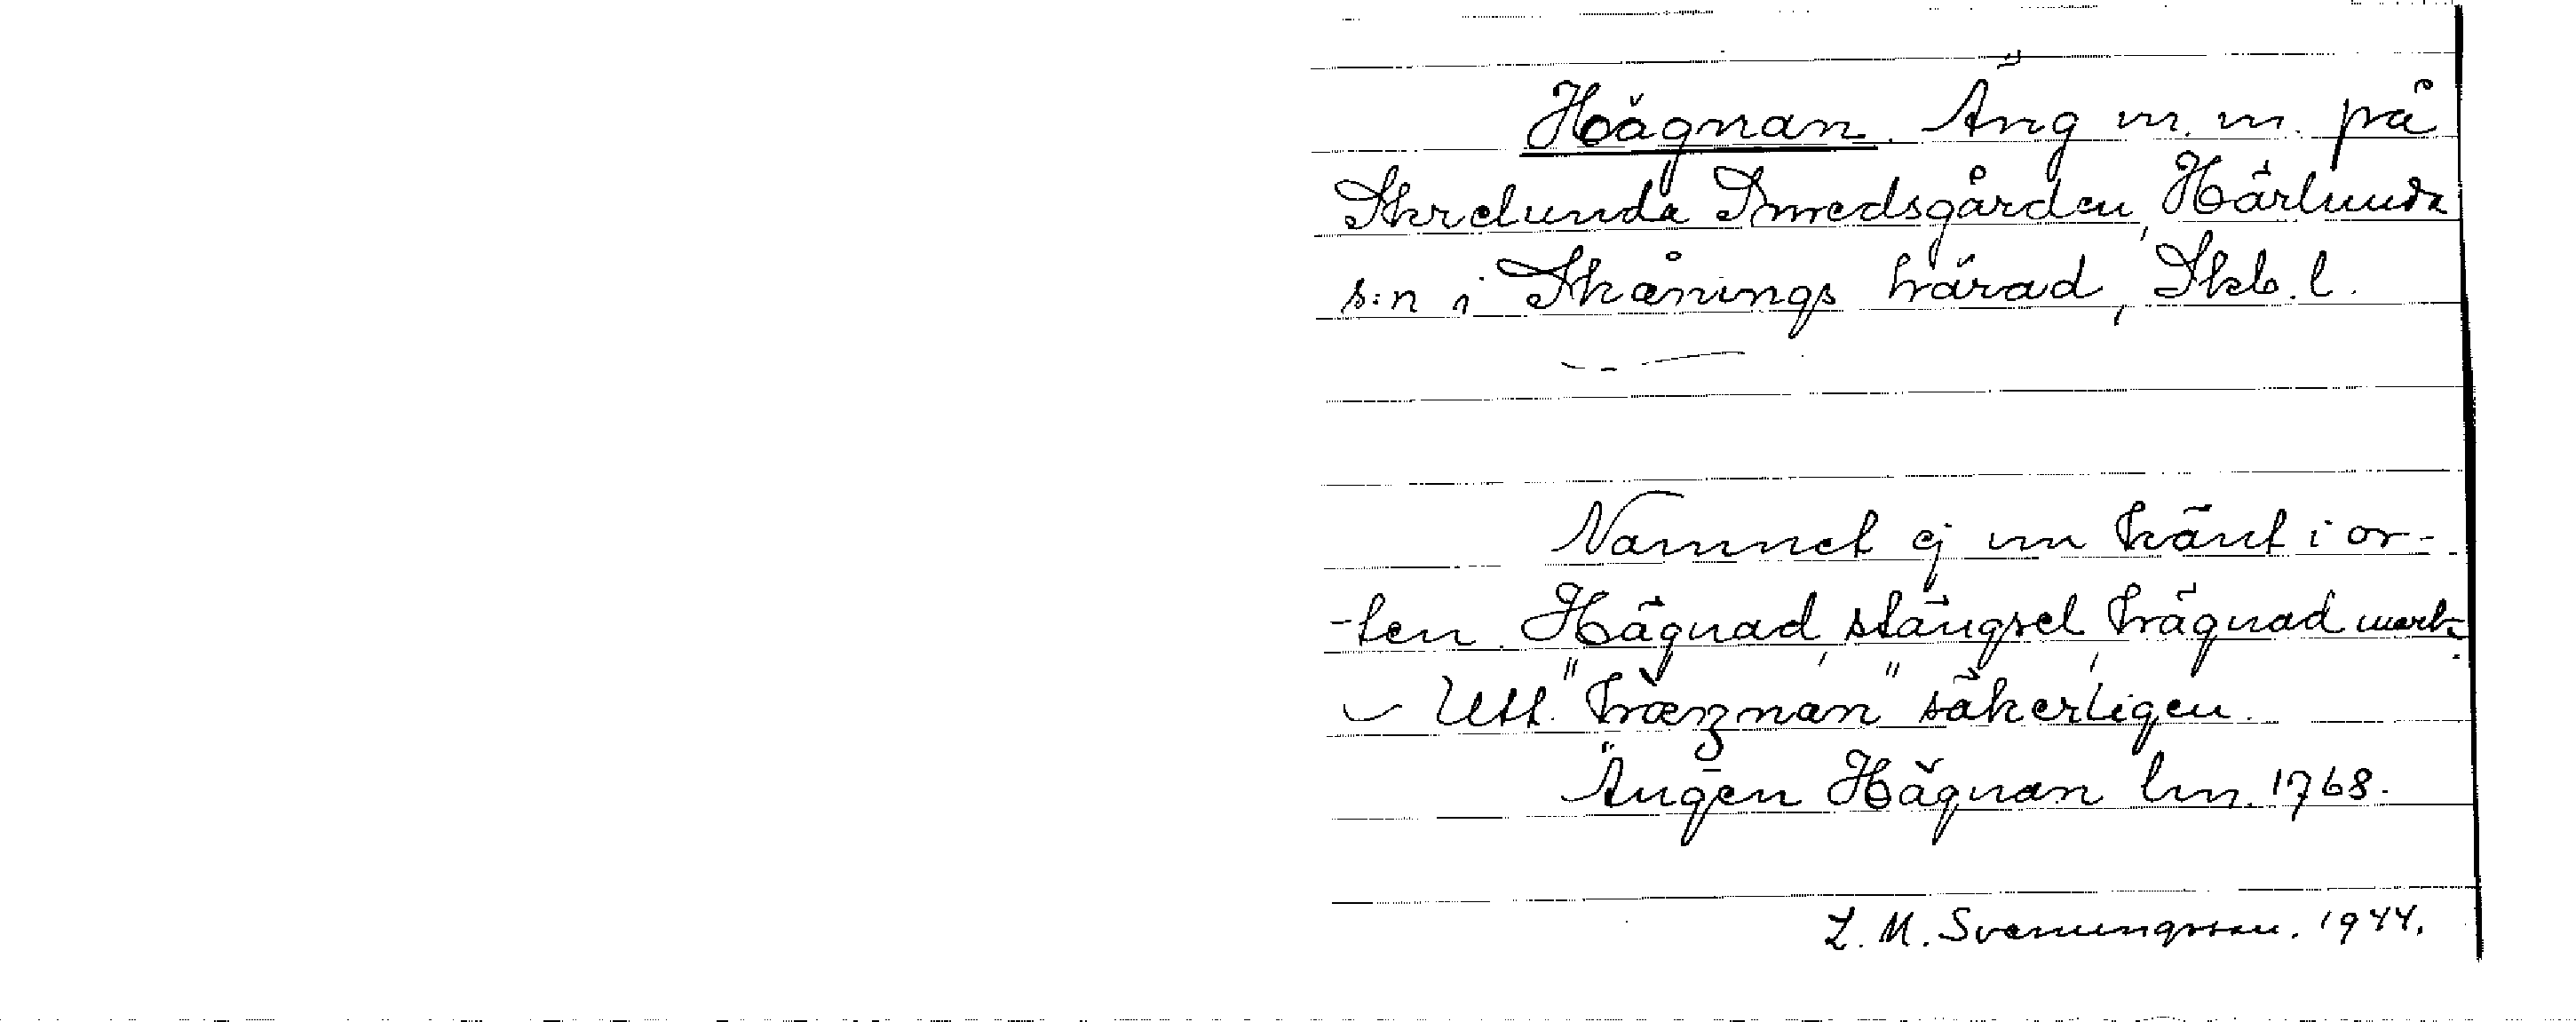 Hägnan. Äng m. m. på
Skrelunda Smedsgården, Härlunda
s:n i Skånings härad, Skb. l.
Namnet ej nu känt i or-
-ten. Hägnad, stängsel, hägnad mark.
Utt. "hæznan" säkerligen.
Ängen Hägnan lm. 1768.
L. M. Svenungsson. 1944.